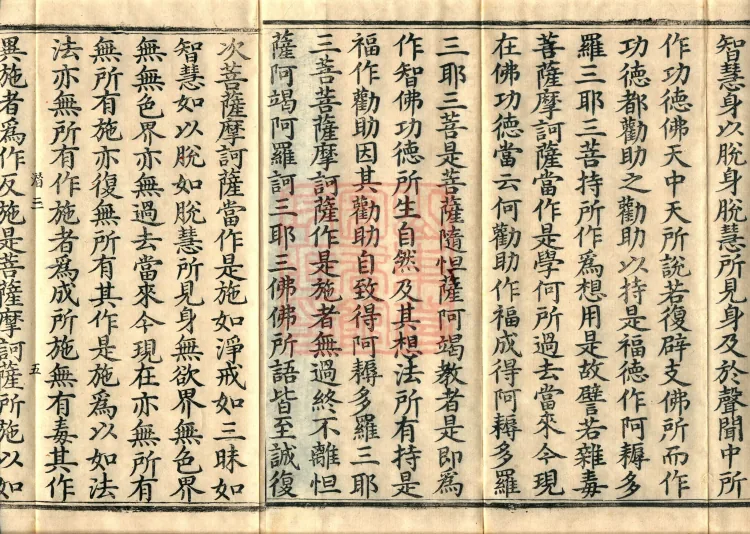 智慧身以脫身脫慧所見身及於聲聞中所
作功德佛天中天所說若復辟支佛所而作
功德都勸助之勸助以持是福德作阿耨多
羅三耶三菩持所作為想用是故譬若雜毒
菩薩摩訶薩當作是學何所過去當來今現
在佛功德當云何勸助作福成得阿耨多羅
三耶三菩是菩薩隨怛薩阿竭教者是即為
作智佛功德所生自然及其想法所有持是
福作勸助因其勸助自致得阿耨多羅三耶
三菩菩薩摩訶薩作是施者無過終不離怛
薩阿竭阿羅訶三耶三佛佛所語皆至誠復
次菩薩摩訶薩當作是施如淨戒如三昧如
智慧如以脫如脫慧所見身無欲界無色界
無無色界亦無過去當來今現在亦無所有
無所有施亦復無所有其作是施為以如法
法亦無所有作施者為成所施無有毒其作
潛三 五
異施者為作反施是菩薩摩訶薩所施以如